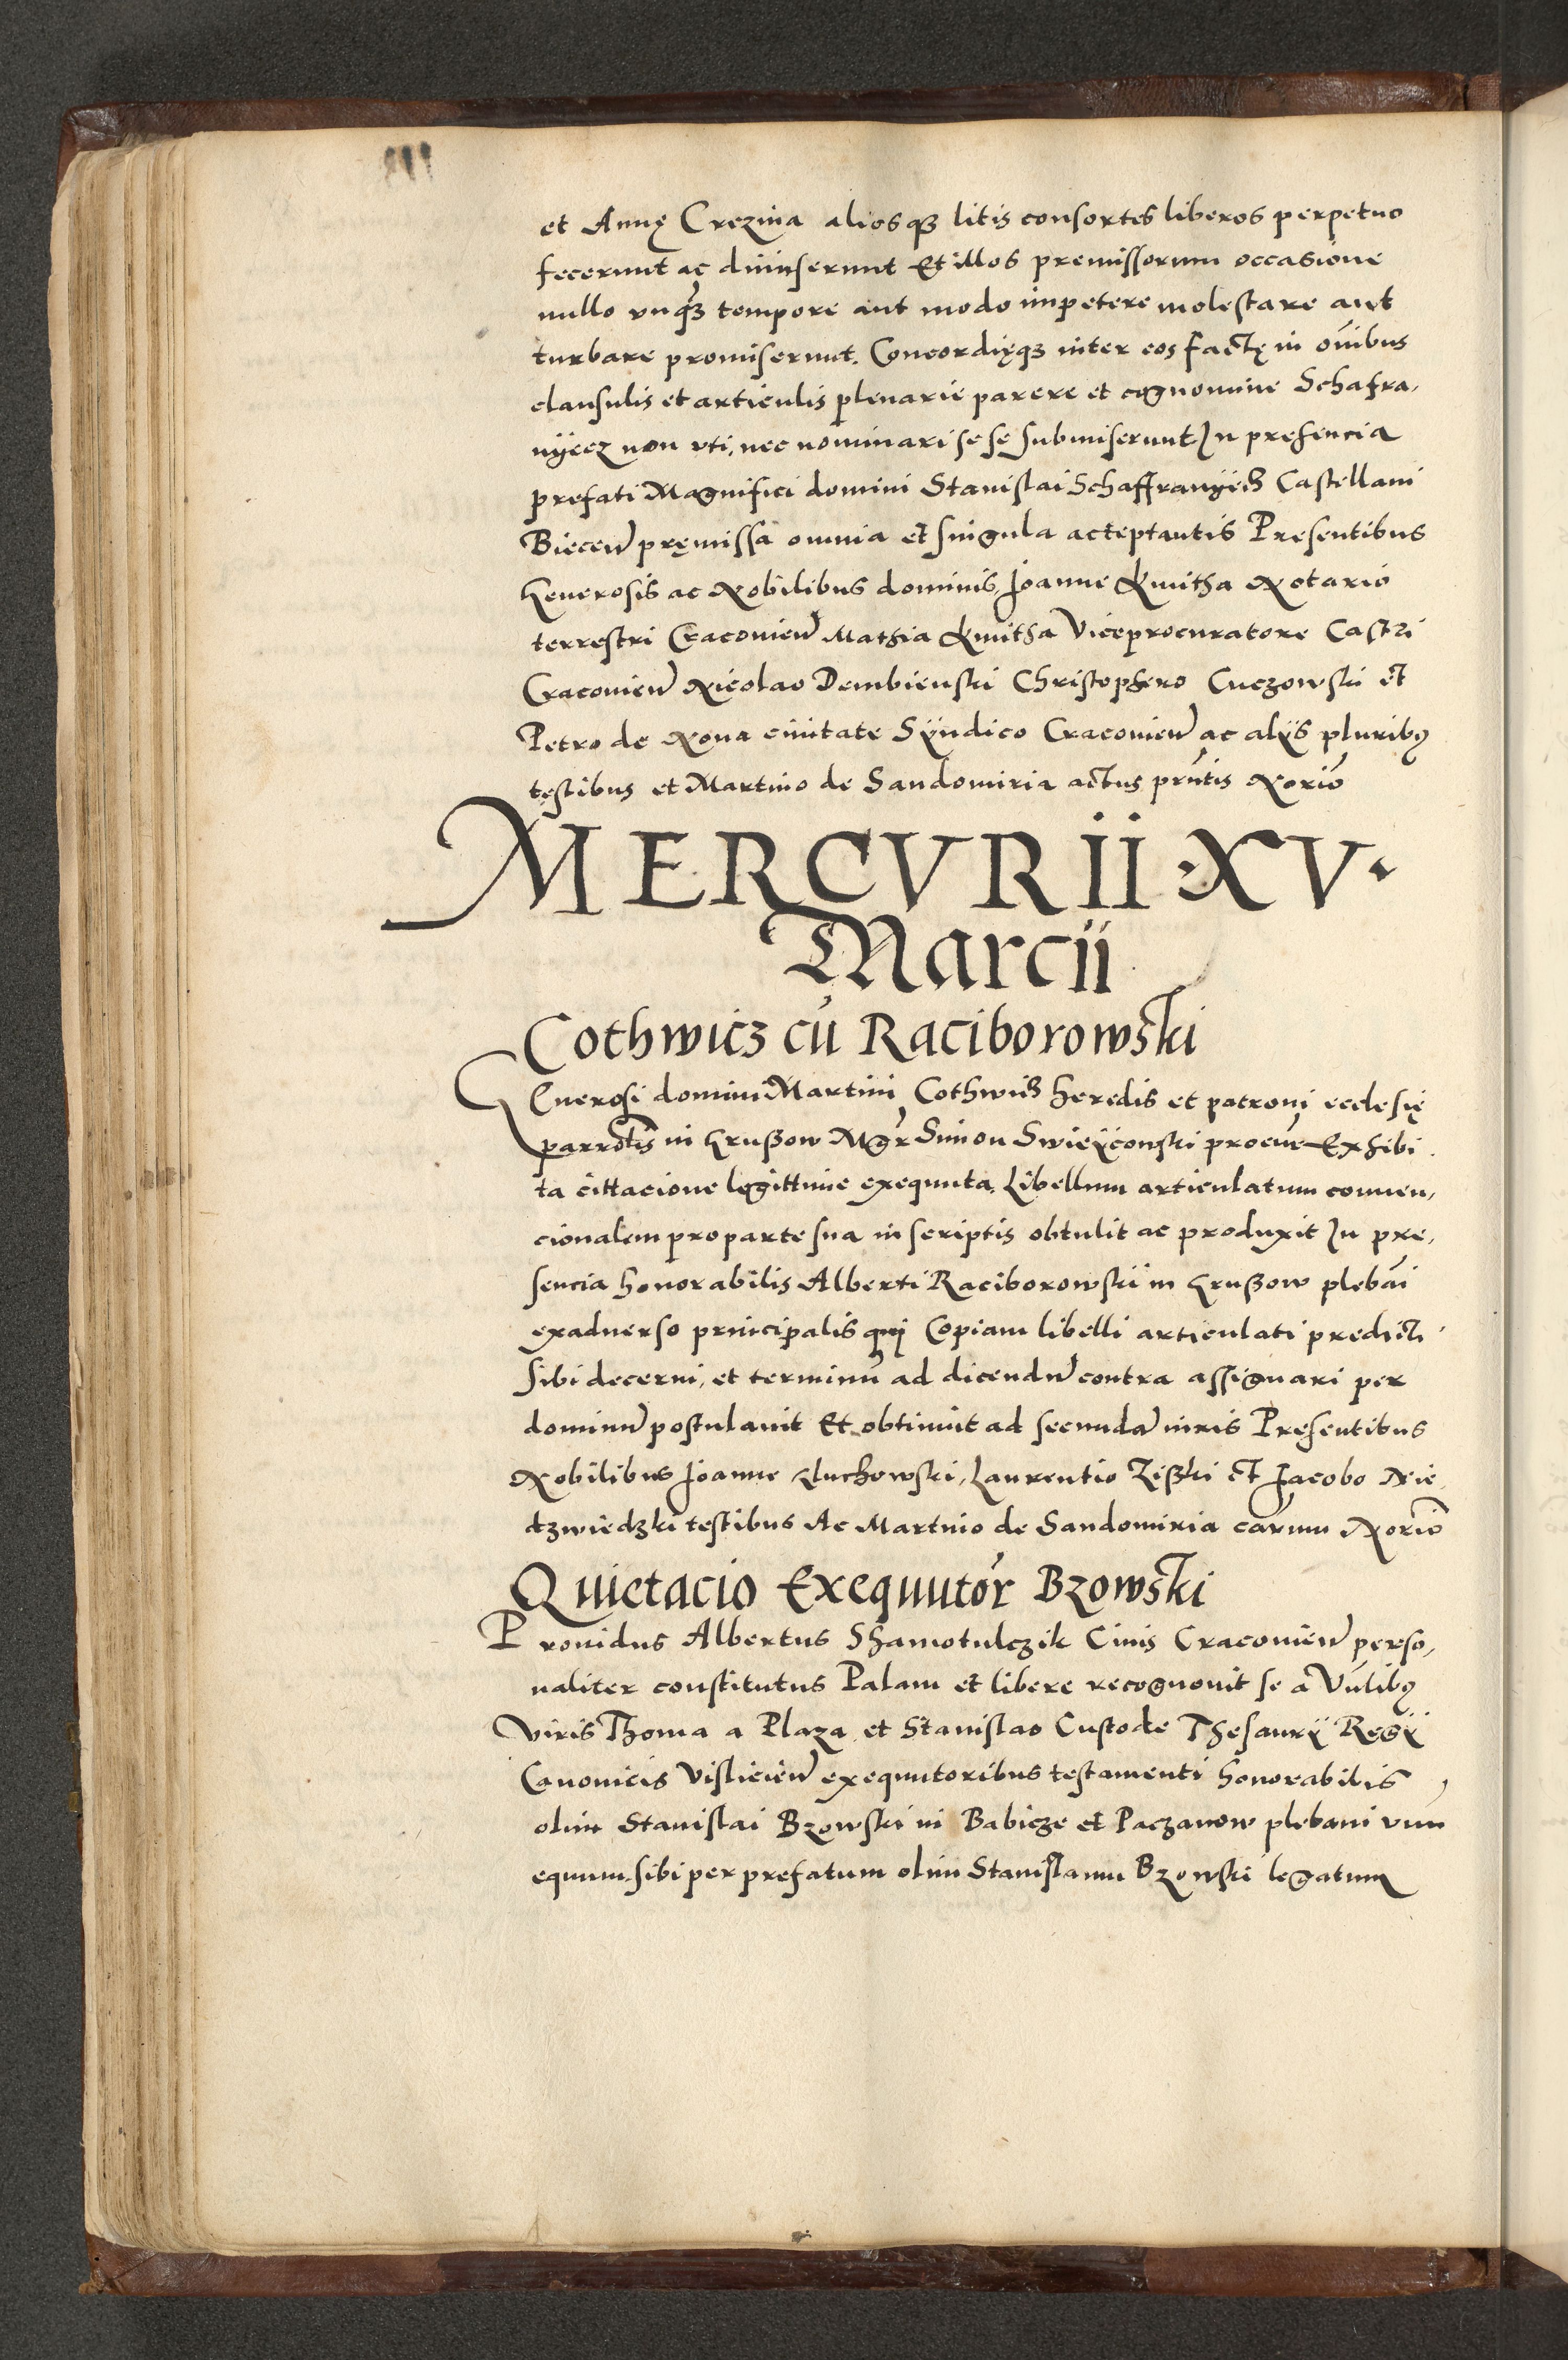 et Annę Crezina aliosq3 litis consortes liberos perpetuo
fecerunt ac dimiserunt Et illos premissorum occasione
nullo vnq̃3 tempore aut modo impetere molestare aut
turbare promiserunt. Concordięq3 inter eos factę in oĩbus
clausulis et articulis plenarie parere et cognomine Schafra,
nyecz non vti, nec nominari se se submiserunt In presencia
prefati Magnifici domini Stanislai Schaffranyecz Castellani
Biecen̄ pręmissa omnia et singula acceptantis Presentibus
Generosis ac Nobilibus dominis Joanne Kmitha Notario
terrestri Cracovien̄ Mathia Kmitha Viceprocuratore Castri
Cracovien̄ Nicolao Dembienski Christophero Cuczowski et
Petro de Nova civitate Syndico Cracovien̄ ac alijs pluribꝰ
testibus et Martino de Sandomiria actus pñtis Norio
MERCVRII · XV ·
Marcii
Cothwicz cū Raciborowski
Generosi domini Martini Cothwicz heredis et patroni ecclesię
parrotis in Grußow Mgr Simon procur Exhibi
ta cittacione legittime exequuta Libellum articulatum conuen,
cionalem pro parte sua in scriptis obtulit ac produxit In pre,
sencia honorabilis Alberti Raciborowski in Grußow plebāi
exaduerso principalis qui Copiam libelli articulati predicti
sibi decerni, et terminū ad dicendū contra assignari per
dominū postulauit Et obtinuit ad secundā iuris Presentibus
Nobilibus Joanne Gluchowski, Laurentio Zißki et Jacobo Nie,
dzwiedzki testibus Ac Martino de Sandomiria carum Norio
Quietacio Exequutor Bzowski
Prouidus Albertus Shamotulczik Ciuis Cracovien̄ perso,
naliter constitutus Palam et libere recognouit se a Vñlibꝰ
Viris Thoma a Plaza et Stanislao Custode Thesaurÿ Regÿ
Canonicis Vislicien̄ exequutoribus testamenti honorabilis
olim Stanislai Bzowski in Babicze et Paczanow plebani vnu
equum sibi per prefatum olim Stanislaum Bzowski legatum